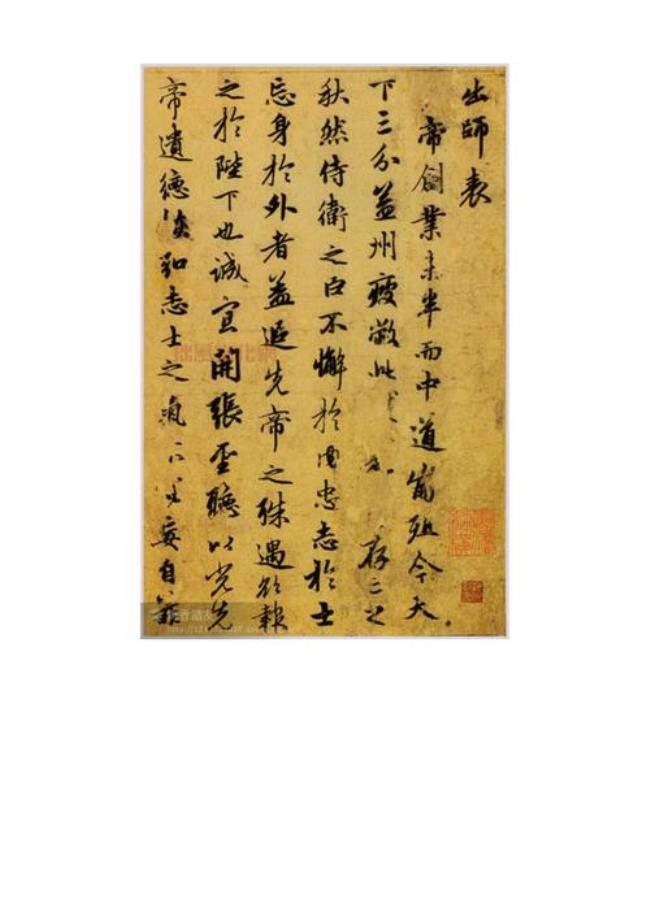 出師表
帝創業未半而中道崩殂今天
下三分益州疲敝此存亡之
秋然侍衛之臣不懈於内忠志於士
忘身於外者盖追先帝之殊遇欲報
之於陛下也誠宜開張聖聽以光先
帝遺德恢志士之氣不宜妄自菲